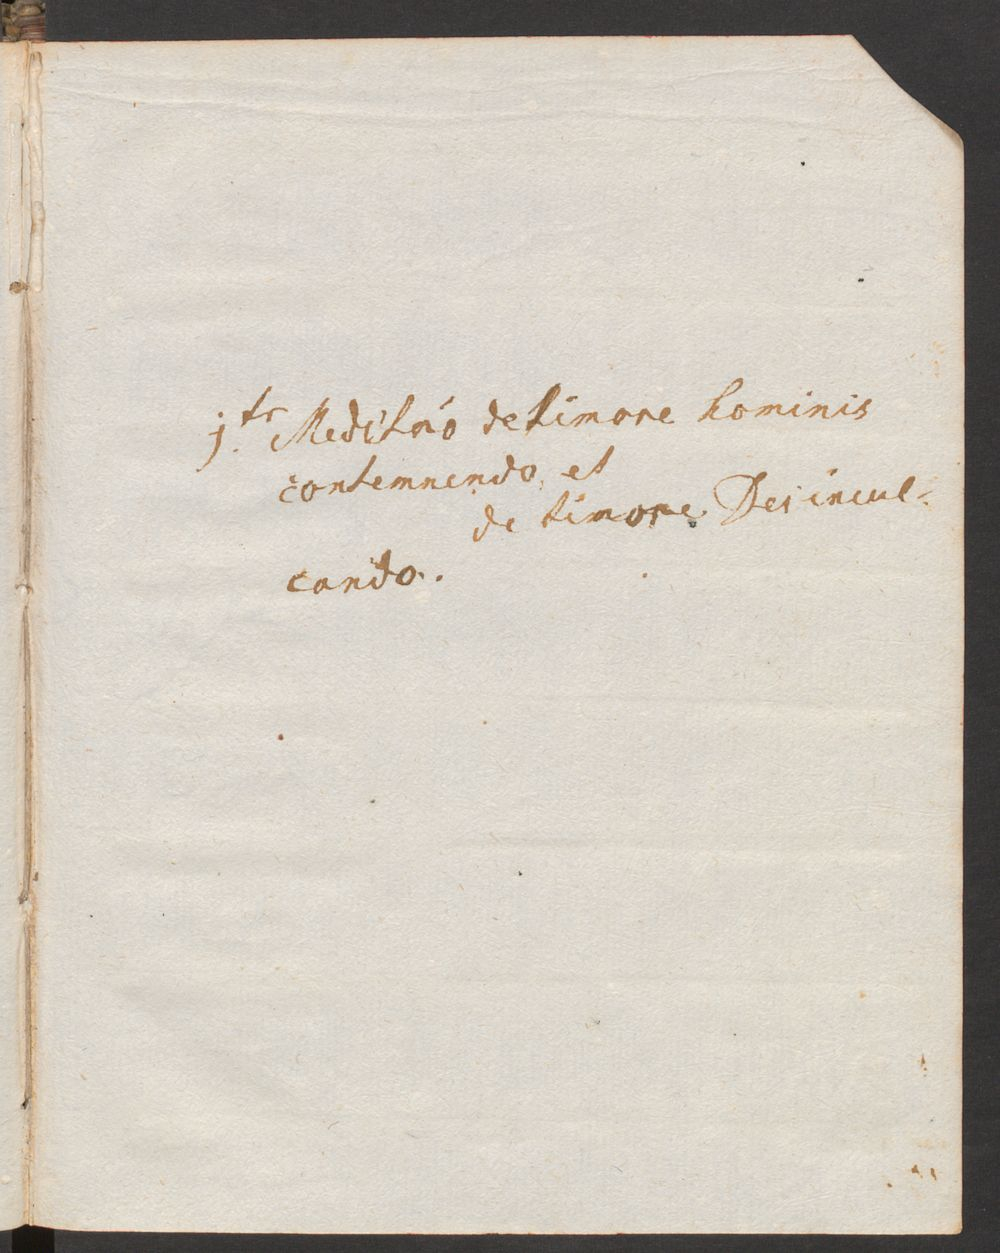 j.tr Meditāo de timore hominis
contemnendo, et
de timore Dei incul-
cando.